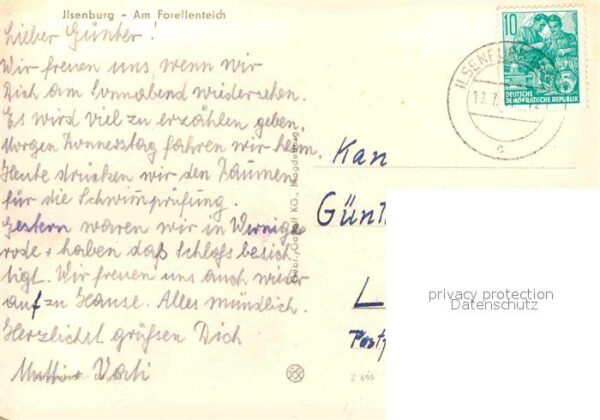 Jlsenburg - Am Forellenteich
Lieber Günter!
Wir freuen uns, wenn wir
Dich am Sonnabend wiedersehen.
Es wird viel zu erzählen geben.
Morgen Donnerstag fahren wir heim.
Heute drücken wir den Daumen
für die Schwimprüfung.
Gestern waren wir in Wernige
rode + haben daß Schloß besich
tigt. Wir freuen uns auch wieder
auf zu Hause. Alles mündlich.
Herzlichst grüßen Dich
Mutti + Vati
10
5
DEUTSCHE
DEMOKRATISCHE REPUBLIK
ILSENBURG
19.7.
c
Gebr. Garloff KG., Magdeburg
Kan
Günt
L
Postf
privacy protection
Datenschutz
Z 699